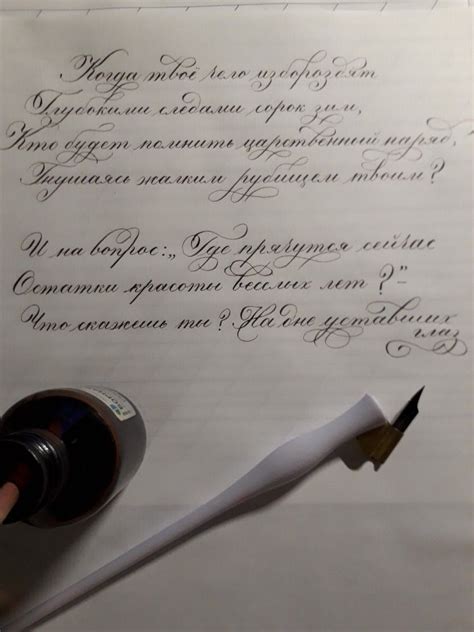 Когда твоё чело избороздят
Глубокими следами сорок зим,
Кто будет помнить царственный наряд,
Гнушаясь жалким рубищем твоим?
И на вопрос: „Где прячутся сейчас
Остатки красоты веселых лет?"-
Что скажешь ты? На дне уставших
глаз